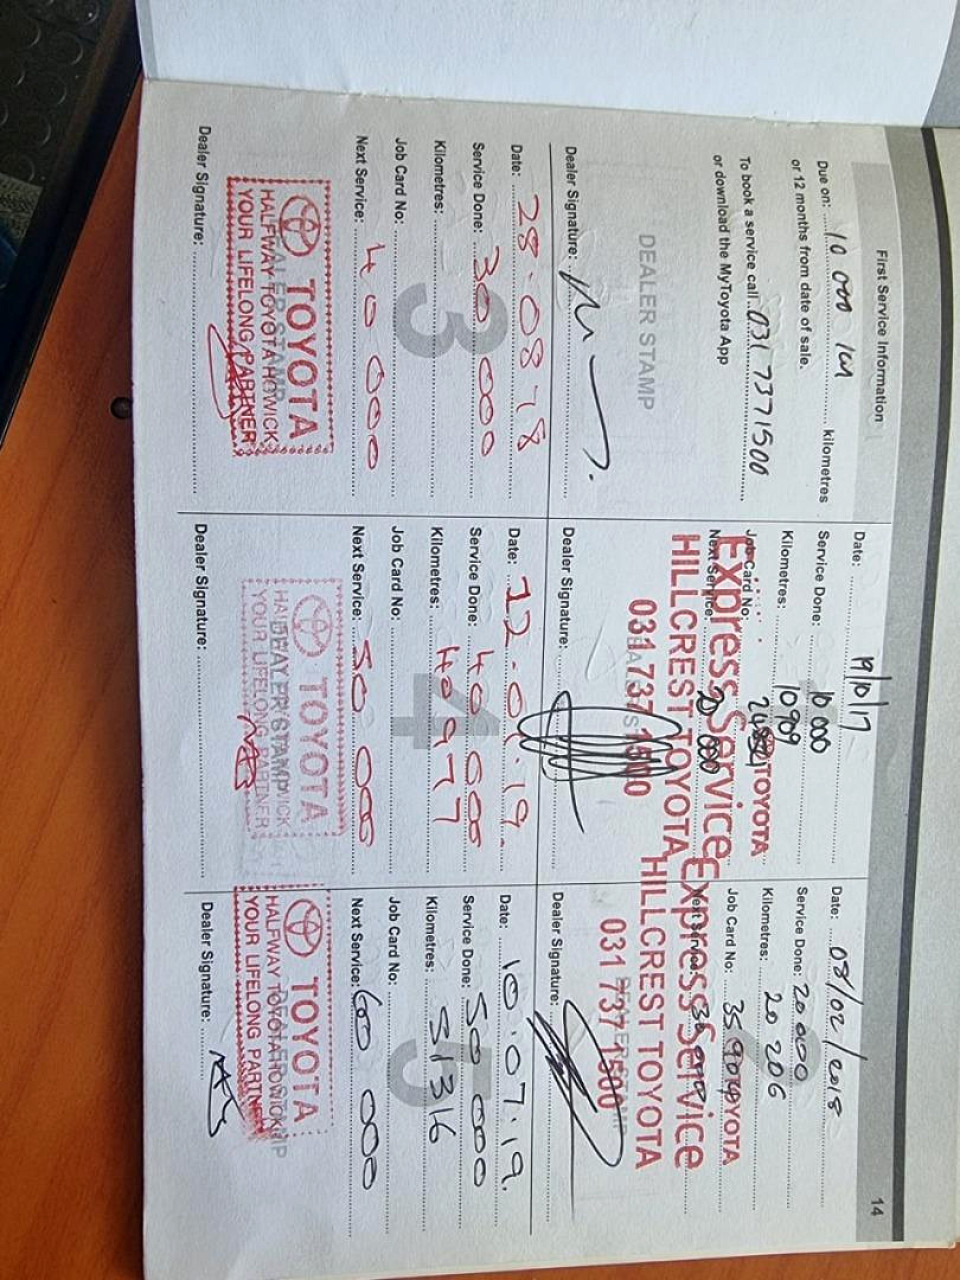 14
First Service Information
Due on: 10 000 km kilometres
or 12 months from date of sale.
To book a service call 031 7371500
or download the MyToyota App
DEALER STAMP
Dealer Signature:
Date: 19/10/17
Service Done: 10 000
Kilometres: 10909
Job Card No:
TOYOTA
Next Service: 20 000
Express Service
HILLCREST TOYOTA
031 737 1500
Dealer Signature:
Date: 08/02/2018
Service Done: 20 000
Kilometres: 20 206
Job Card No: 35904
TOYOTA
Next Service: 30 000
Express Service
HILLCREST TOYOTA
031 737 1500
Dealer Signature:
3
Date: 28.08.18
Service Done: 30 000
Kilometres:
Job Card No:
Next Service: 40 000
TOYOTA
DEALER STAMP
HALFWAY TOYOTA HOWICK
YOUR LIFELONG PARTNER
Dealer Signature:
4
Date: 12.01.19
Service Done: 40 000
Kilometres: 40977
Job Card No:
Next Service: 50 000
TOYOTA
DEALER STAMP
HALFWAY TOYOTA HOWICK
YOUR LIFELONG PARTNER
Dealer Signature:
5
Date: 10.07.19.
Service Done: 50 000
Kilometres: 51316
Job Card No:
Next Service: 60 000
TOYOTA
DEALER STAMP
HALFWAY TOYOTA HOWICK
YOUR LIFELONG PARTNER
Dealer Signature: